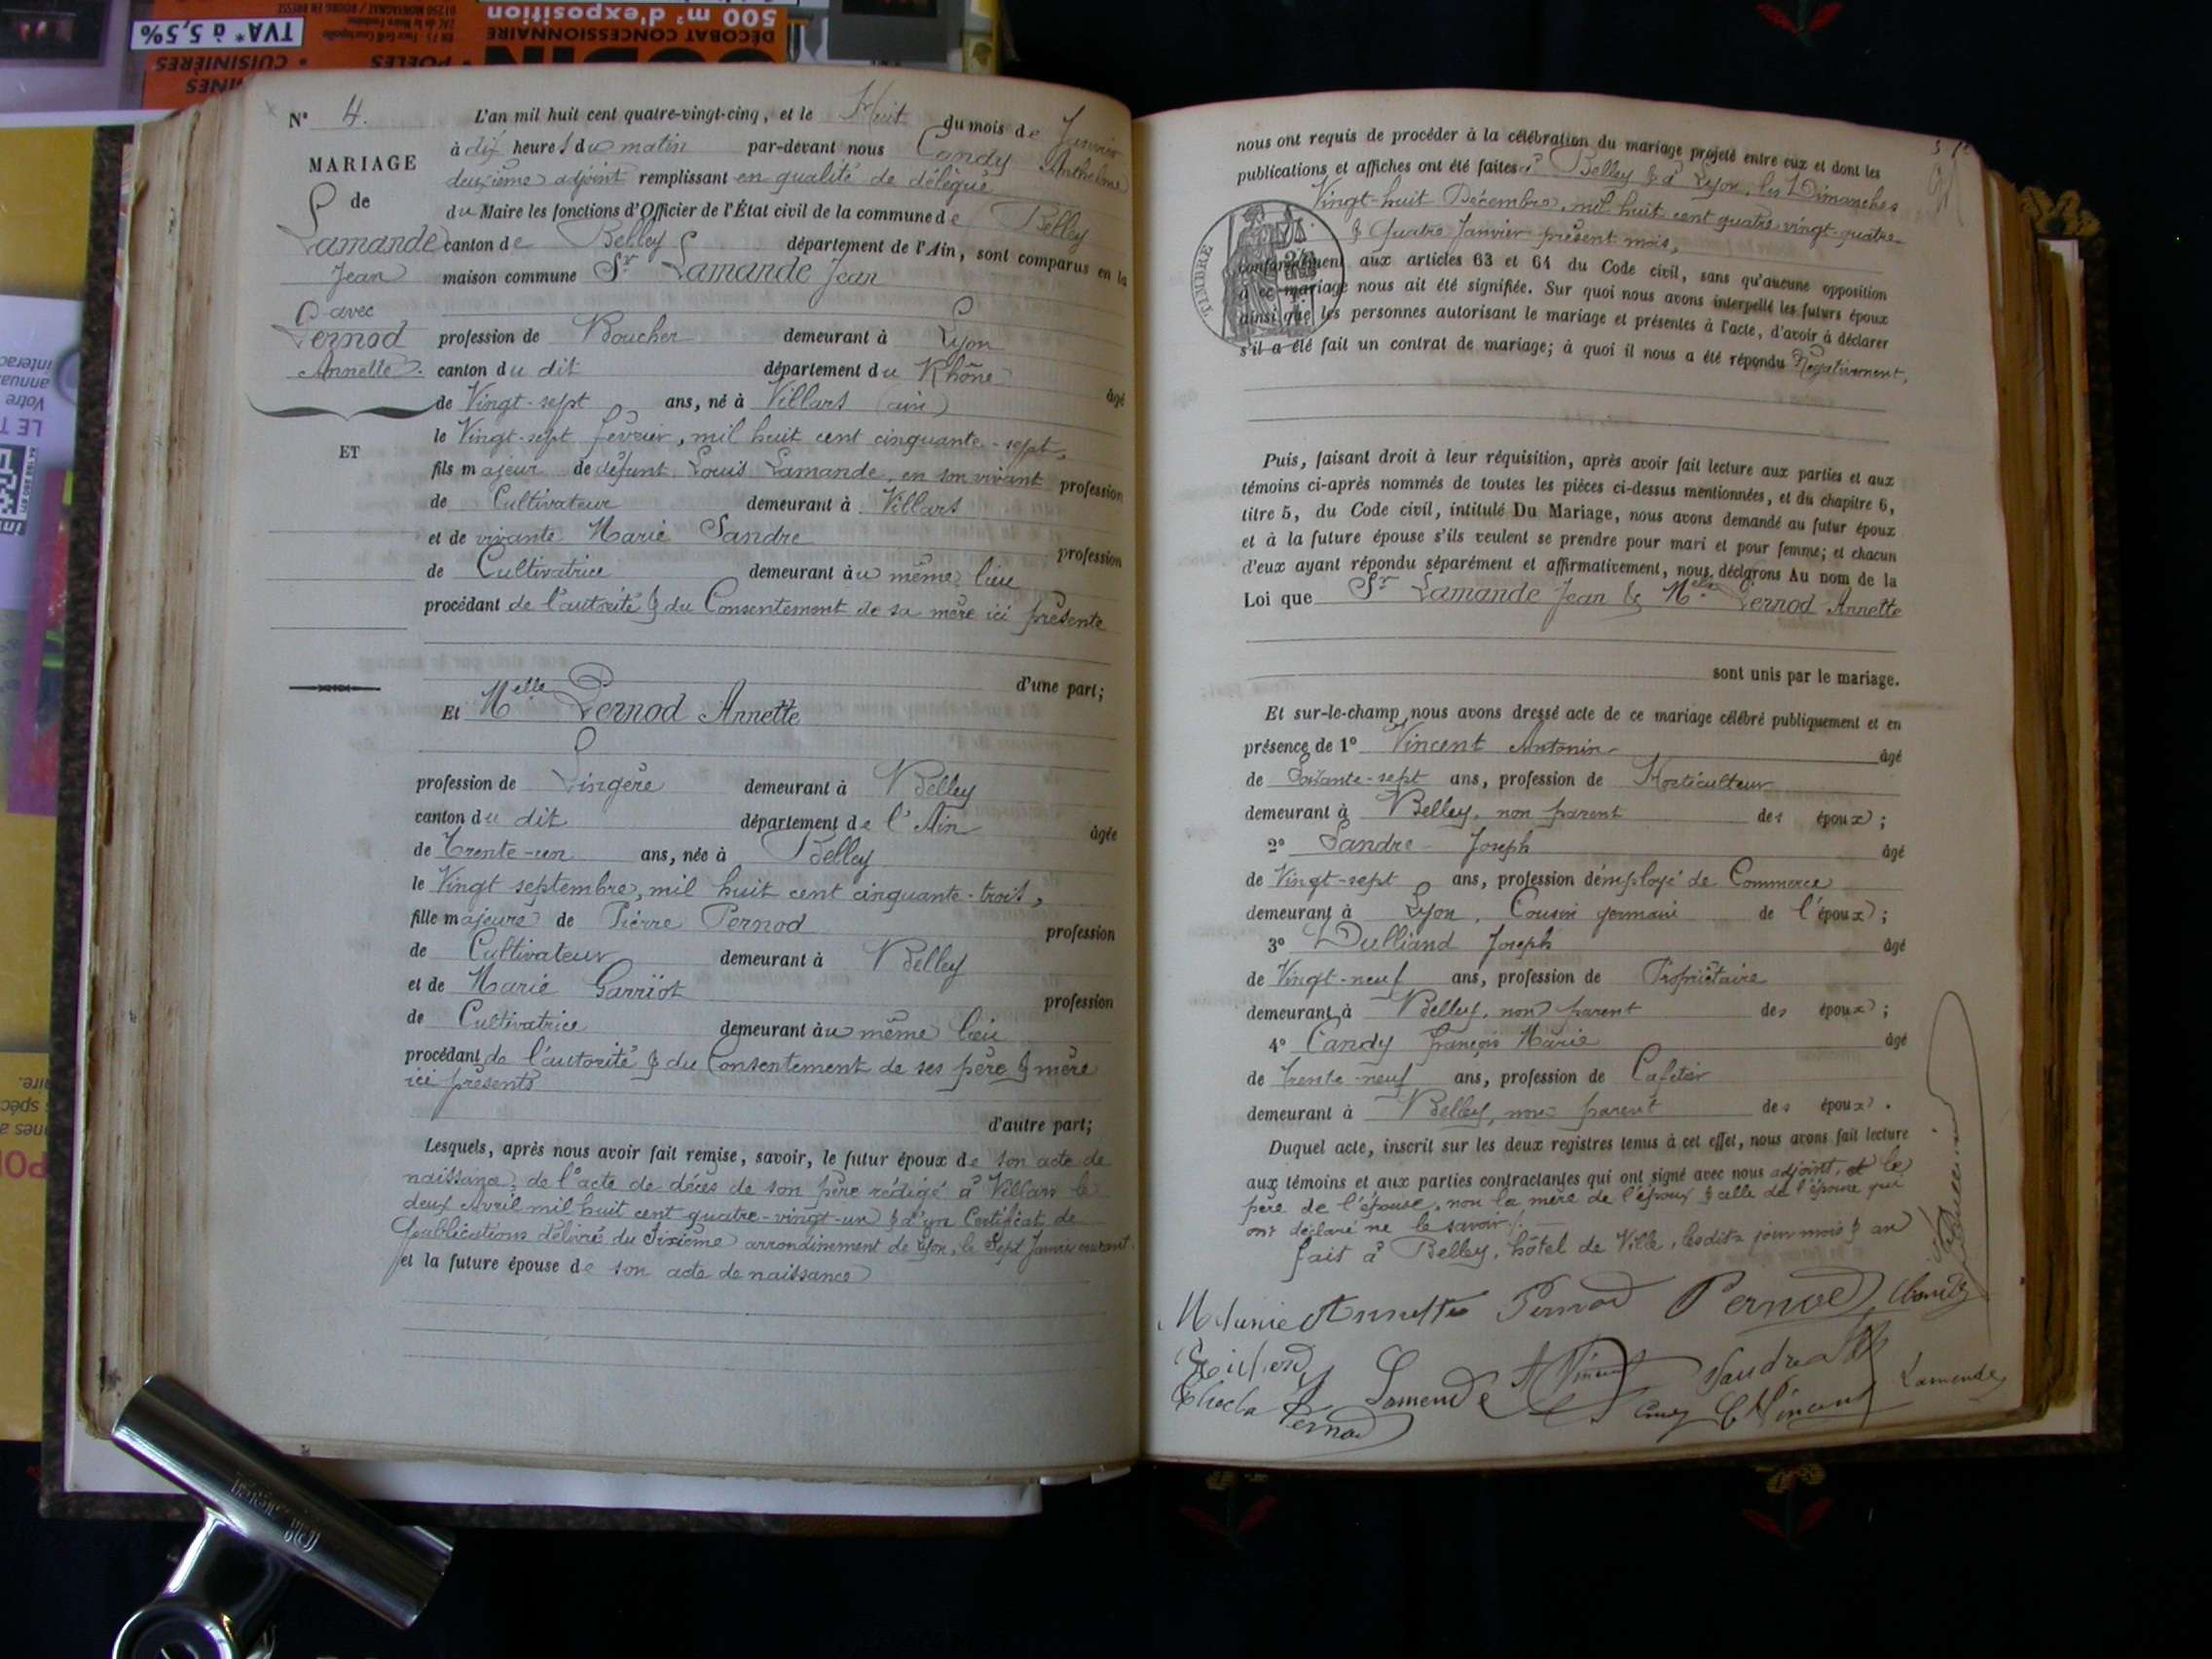 N° 4.
MARIAGE
de
Lamande
Jean
avec
Pernod
Annette.
ET
L'an mil huit cent quatre-vingt-cinq, et le Huit du mois de Janvier
à dix heures du matin par-devant nous Candy Anthelme
deuxième adjoint remplissant en qualité de délégué
du Maire les fonctions d'Officier de l'État civil de la commune de Belley
canton de Belley département de l'Ain, sont comparus en la
maison commune Sr Lamande Jean
profession de Boucher demeurant à Lyon
canton du dit département du Rhône âgé
de Vingt-sept ans, né à Villars (ain)
le Vingt-sept février, mil huit cent cinquante-sept,
fils majeur de défunt Louis Lamande, en son vivant profession
de Cultivateur demeurant à Villars
et de vivante Marie Sandre profession
de Cultivatrice demeurant au même lieu
procédant de l'autorité & du Consentement de sa mère ici présente
d'une part;
Et Melle Pernod Annette
profession de Lingère demeurant à Belley
canton du dit département de l'Ain âgée
de Trente-un ans, née à Belley
le Vingt septembre, mil huit cent cinquante-trois,
fille majeure de Pierre Pernod profession
de Cultivateur demeurant à Belley
et de Marie Garriot profession
de Cultivatrice demeurant au même lieu
procédant de l'autorité & du Consentement de ses père & mère
ici présents
d'autre part;
Lesquels, après nous avoir fait remise, savoir, le futur époux de son acte de
naissance, de l'acte de décès de son père rédigé à Villars le
deux Avril mil huit cent quatre-vingt-un & d'un Certificat de
publications délivré du Sixième arrondissement de Lyon, le Sept Janvier courant.
et la future épouse de son acte de naissance
nous ont requis de procéder à la célébration du mariage projeté entre eux et dont les
publications et affiches ont été faites à Belley & à Lyon, les Dimanches
Vingt-huit Décembre, mil huit cent quatre-vingt-quatre
& Quatre Janvier présent mois,
conformément aux articles 63 et 64 du Code civil, sans qu'aucune opposition
à ce mariage nous ait été signifiée. Sur quoi nous avons interpellé les futurs époux
ainsi que les personnes autorisant le mariage et présentes à l'acte, d'avoir à déclarer
s'il a été fait un contrat de mariage; à quoi il nous a été répondu Négativement,
TIMBRE
Puis, faisant droit à leur réquisition, après avoir fait lecture aux parties et aux
témoins ci-après nommés de toutes les pièces ci-dessus mentionnées, et du chapitre 6,
titre 5, du Code civil, intitulé Du Mariage, nous avons demandé au futur époux
et à la future épouse s'ils veulent se prendre pour mari et pour femme; et chacun
d'eux ayant répondu séparément et affirmativement, nous déclarons Au nom de la
Loi que Sr Lamande Jean & Melle Pernod Annette
sont unis par le mariage.
Et sur-le-champ nous avons dressé acte de ce mariage célébré publiquement et en
présence de 1° Vincent Antonin âgé
de Soixante-sept ans, profession de Horticulteur
demeurant à Belley, non parent des époux;
2° Sandre Joseph âgé
de Vingt-sept ans, profession d'employé de Commerce
demeurant à Lyon, Cousin germain de l'époux;
3° Dulliand Joseph âgé
de Vingt-neuf ans, profession de Propriétaire
demeurant à Belley, non parent des époux;
4° Candy François Marie âgé
de Trente-neuf ans, profession de Cafetier
demeurant à Belley, non parent des époux.
Duquel acte, inscrit sur les deux registres tenus à cet effet, nous avons fait lecture
aux témoins et aux parties contractantes qui ont signé avec nous adjoint, et le
père de l'épouse, non la mère de l'époux & celle de l'épouse qui
ont déclaré ne le savoir.
fait à Belley, hôtel de Ville, lesdits jour mois & an
Annette Pernod Pernod Candy
Lamende A Vincent Sandre Lamende
Thecla Pernod Candy Vincent
500 m² d'exposition
DÉCOBAT CONCESSIONNAIRE
TVA* à 5,5%
• CUISINIÈRES
• POÊLES